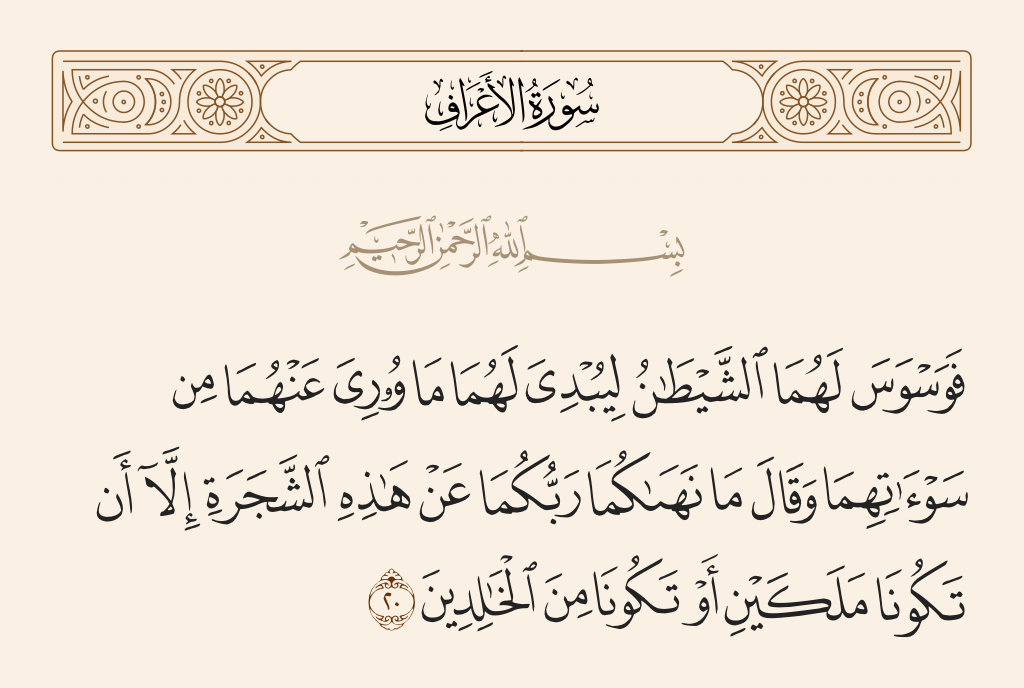 سُورَةُ الْأَعْرَافِ
بِسْمِ ٱللَّهِ ٱلرَّحْمَٰنِ ٱلرَّحِيمِ
فَوَسْوَسَ لَهُمَا ٱلشَّيْطَٰنُ لِيُبْدِىَ لَهُمَا مَا وُۥرِىَ عَنْهُمَا مِن
سَوْءَٰتِهِمَا وَقَالَ مَا نَهَىٰكُمَا رَبُّكُمَا عَنْ هَٰذِهِ ٱلشَّجَرَةِ إِلَّآ أَن
تَكُونَا مَلَكَيْنِ أَوْ تَكُونَا مِنَ ٱلْخَٰلِدِينَ ٢٠